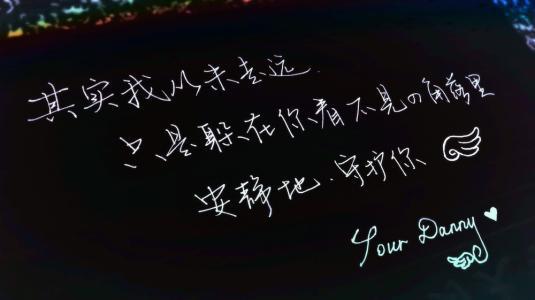 其实我从未走远
只是躲在你看不见的角落里
安静地.守护你
Your Danny